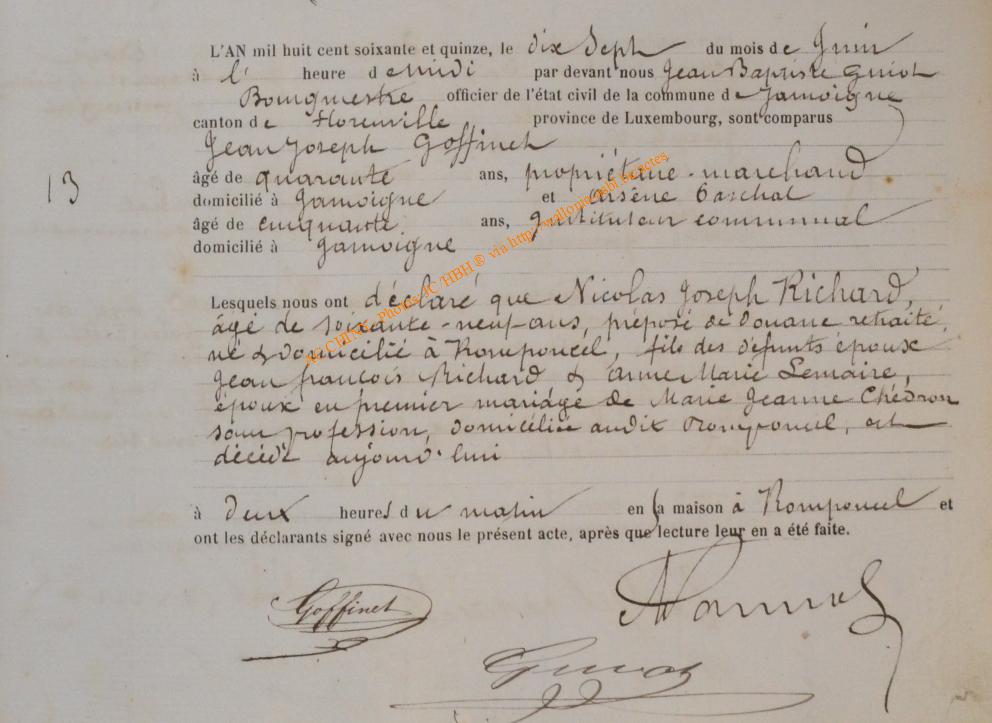 L'AN mil huit cent soixante et quinze, le dix Sept du mois de Juin
à l' heure de midi par devant nous Jean Baptiste Guiot
Bourgmestre officier de l'état civil de la commune de Jamoigne
canton de Florenville province de Luxembourg, sont comparus
Jean Joseph Goffinet
âgé de quarante ans, propriétaire-marchand
13
domicilié à Jamoigne et Arsène Paschal
âgé de cinquante ans, Instituteur communal
domicilié à Jamoigne
Lesquels nous ont déclaré que Nicolas Joseph Richard,
âgé de soixante-neuf ans, préposé de douane retraité,
né & domicilié à Romponcel, fils des défunts époux
Jean françois Richard & Anne Marie Lemaire,
époux en premier mariage de Marie Jeanne Chédron
sans profession, domiciliée audit Romponcel, est
décédé aujourd'hui
à deux heures du matin en la maison à Romponcel et
ont les déclarants signé avec nous le présent acte, après que lecture leur en a été faite.
Goffinet
Guiot
ARCHIVES- Photos JC/HBH ® via http://wallonica.sbl.be.actes